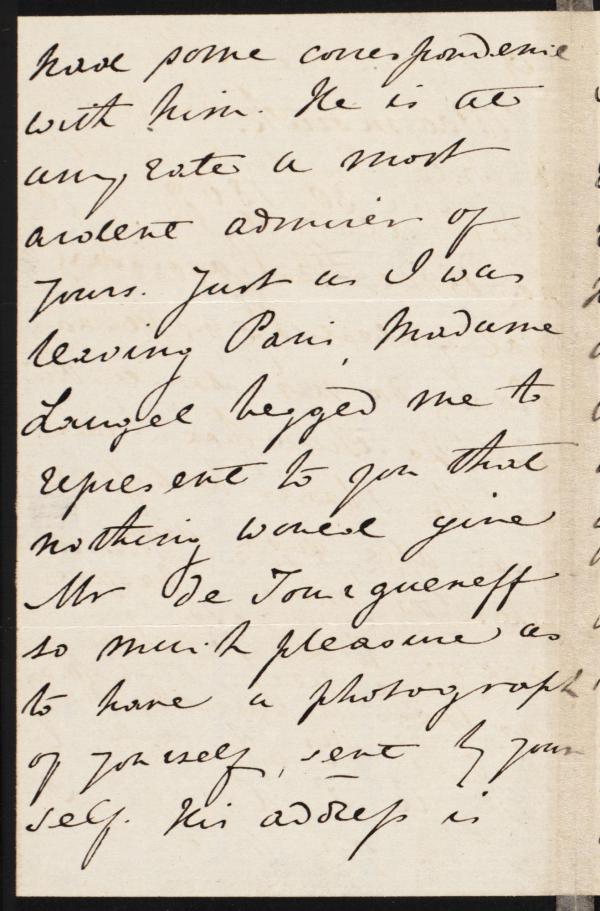 had some correspondence
with him. He is at
any rate a most
ardent admirer of
yours. Just as I was
leaving Paris, Madame
Laugel begged me to
represent to you that
nothing would give
Mr de Tourgueneff
so much pleasure as
to have a photograph
of yourself, sent by your
self. His address is